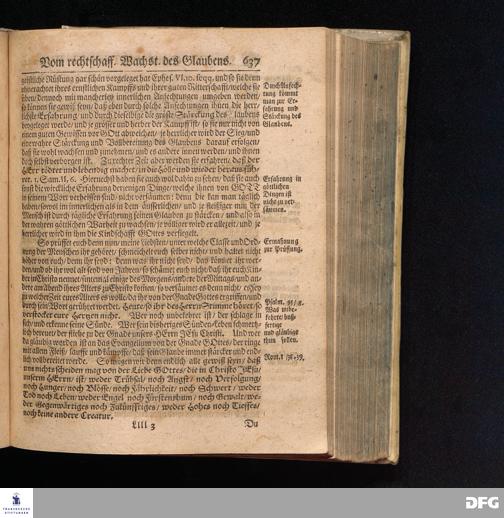 Vom rechtschaff. Wachst. des Glaubens. 637
geistliche Rüstung gar schön vorgeleget hat Ephes. VI, 10. seqq. und so sie denn
unerachtet ihres ernstlichen Kampffs und ihrer guten Ritterschafft/ welche sie
üben/ dennoch mit mancherley innerlichen Anfechtungen umgeben werden/
so können sie gewiß seyn/ daß eben durch solche Anfechtungen ihnen die herr-
lichste Erfahrung/ und durch dieselbige die gröste Stärckung des Glaubens
vorgeleget werde/ und je grösser und herber der Kampff ist/ so sie nur nicht von
einem guten Gewissen vor GOtt abweichen/ je herrlicher wird der Sieg/ und
eine wahre Stärckung und Vollbereitung des Glaubens darauf erfolgen/
daß sie wohl wachsen und zunehmen/ und es andere innen werden/ und ihnen
doch selbst verborgen ist. Zu rechter Zeit aber werden sie erfahren/ daß der
HErr tödtet und lebendig machet/ in die Hölle und wieder heraus füh-
ret. 1. Sam. II, 6. Hiernechst haben sie auch wol dahin zu sehen/ daß sie auch
sonst die wirckliche Erfahrung derjenigen Dinge/ welche ihnen von GOTT
in seinem Wort verheissen sind/ nicht versäumen: denn die kan man täglich
haben/ sowol im innerlichen als in dem äusserlichen/ und je fleißiger nun der
Mensch ist durch tägliche Erfahrung seinen Glauben zu stärcken/ und also in
der wahren göttlichen Warheit zu wachsen/ je völliger wird er allezeit/ und je
herrlicher wird in ihm die Kindschafft GOttes versiegelt.
So prüffet euch denn nun/ meine Liebsten/ unter welche Classe und Ord-
nung der Menschen ihr gehöret/ schmeichelt euch selber nicht/ und haltet nicht
höher von euch/ denn ihr seyd: denn was ihr nicht seyd/ das könnet ihr wer-
den/ und ob ihr wol alt seyd von Jahren/ so schämet euch nicht/ daß ihr euch Kin-
der in Christo nennet/
durch sein Wort gerühret werdet. Heute/ so ihr des HErrn Stimme höret/ so
verstocket eure Hertzen nicht. Wer noch unbekehret ist/ der schlage in
sich und erkenne seine Sünde. Wer sein bisheriges Sünden-Leben schmertz-
lich bereuet/ der fliehe zu der Gnade unsers HErrn JEsu Christi. Und wer
da gläubig worden ist an das Evangelium von der Gnade GOttes/ der ringe
mit allem Fleiß/ seuffze und kämpffe/ daß sein Glaube immer stärcker und end-
lich vollbereitet werde. So mögen wir denn endlich alle gewiß seyn/ daß
uns nichts scheiden mag von der Liebe GOttes/ die in Christo JEsu/
unserm HErrn/ ist/ weder Trübsal/ noch Angst/ noch Verfolgung/
noch Hunger/ noch Blösse/ noch Fährlichkeit/ noch Schwert/ weder
Tod noch Leben/ weder Engel noch Fürstenthum/ noch Gewalt/ we-
der Gegenwärtiges noch Zukünfftiges/ weder Hohes noch Tieffes/
noch keine andere Creatur.
Llll 3 Du
Durch Anfech-
tung kömmt
man zur Er-
fahrung und
Stärckung des
Glaubens.
Erfahrung in
göttlichen
Dingen ist
nicht zu ver-
säumen.
Ermahnung
zur Prüfung.
Was unbe-
kehrte/ buß-
fertige
und gläubige
thun sollen.
FRANCKESCHE
STIFTUNGEN
DFG